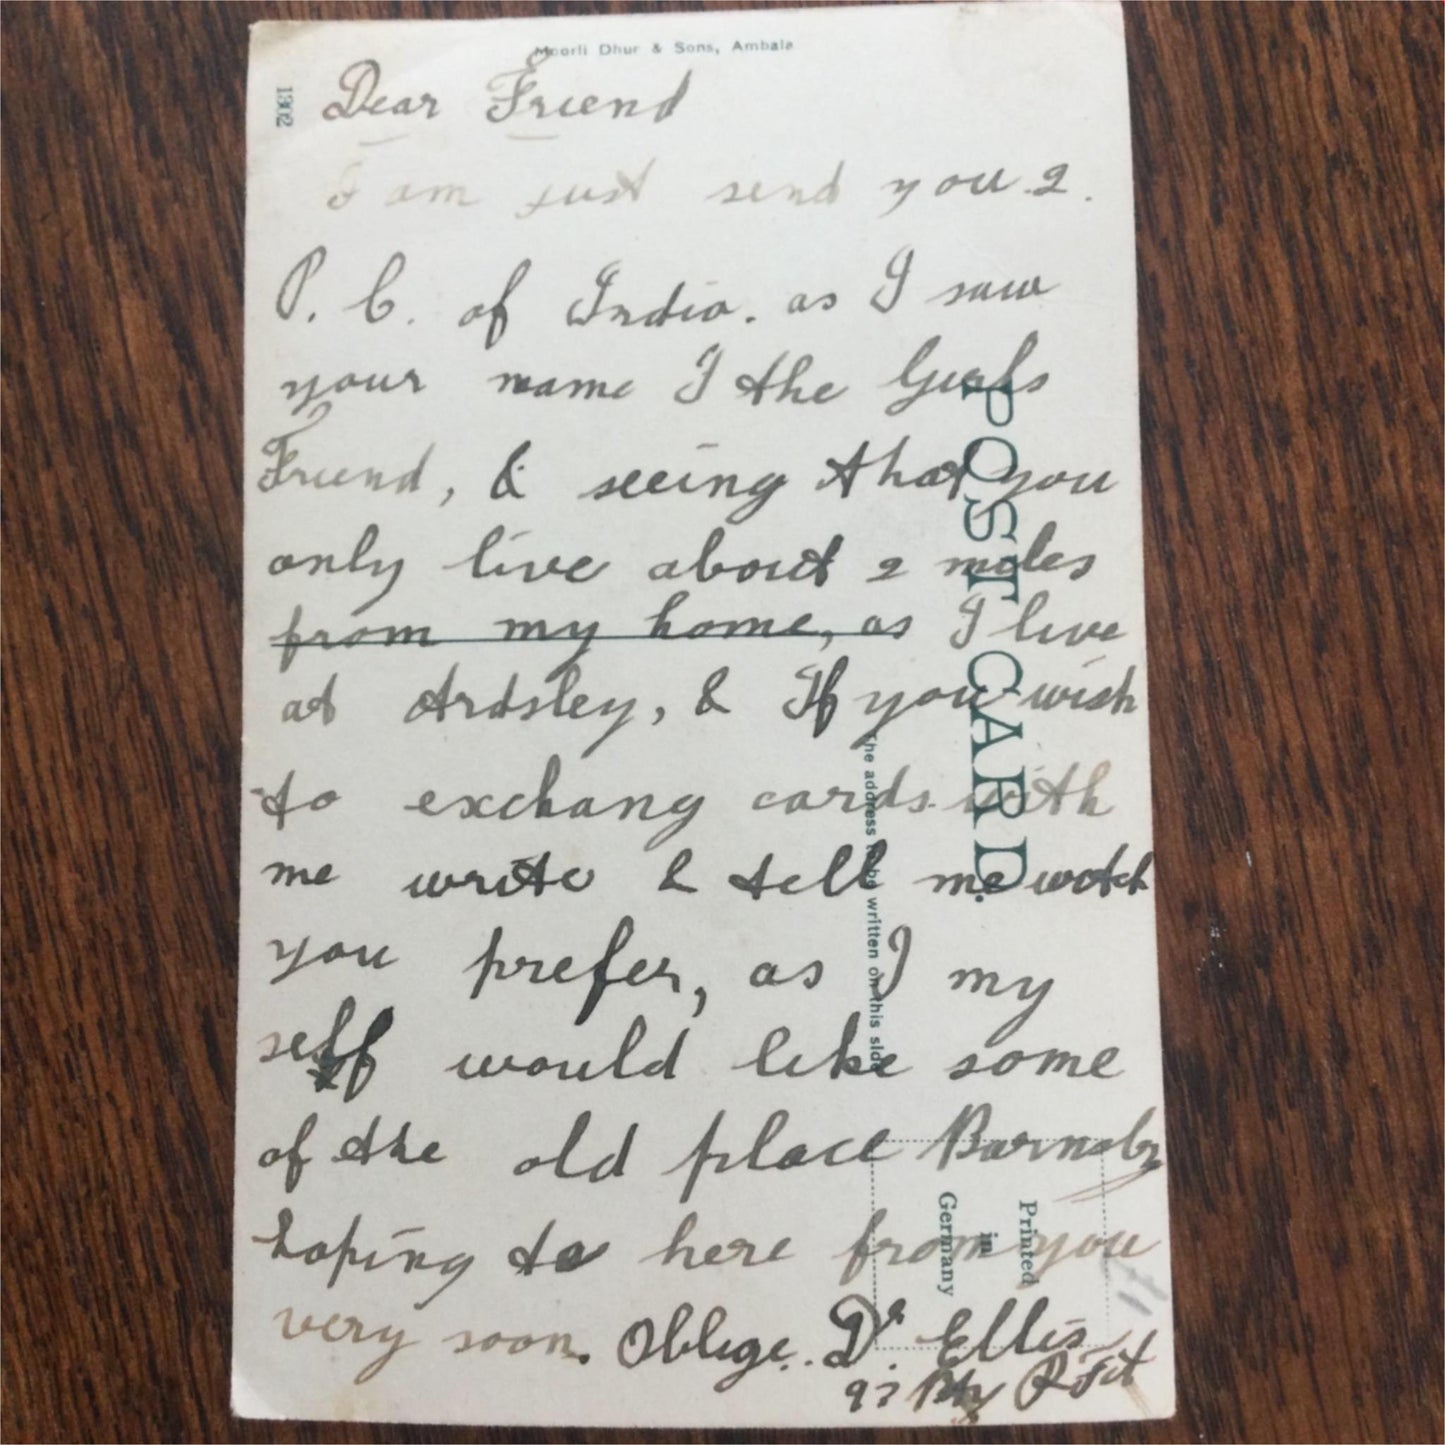 Moorli Dhur & Sons, Ambala
1302
Dear Friend
I am just send you 2.
P. C. of India. as I saw
your name I the Girls
Friend, & seeing that you
only live about 2 miles
from my home, as I live
at Ardsley, & If you wish
to exchang cards with
me write & tell me wotch
you prefer, as I my
self would like some
of the old place Barnsby
hoping to here from you
very soon. Oblige. Dr. Ellis
97 Bty R F A
POST CARD.
The address to be written on this side
Printed
in
Germany